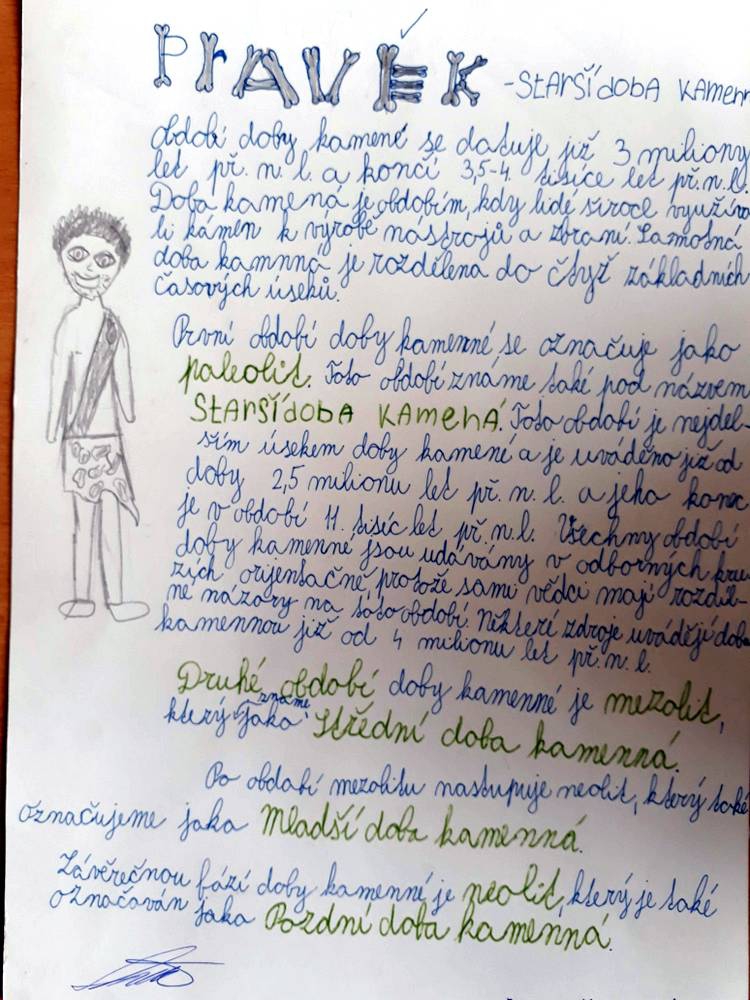 PravĚK - STARŠÍ DOBA KAMENN
Období doby kamené se datuje již 3 miliony
let př. n. l. a končí 3,5-4 tisíce let př. n. l.
Doba kamená je obdobím, kdy lidé široce využív
li kámen k výrobě nástrojů a zbraní. Samotná
doba kamnná je rozdělena do čtyž základních
časových úseků.
První období doby kamenné se označuje jako
paleolit. Toto období známe také pod názvem
STARŠÍ DOBA KAMENÁ. Toto období je nejdel-
ším úsekem doby kamené a je uváděno již od
doby 2,5 milionu let př. n. l. a jeho konec
je v období 11. tisíc let př. n. l. Všechny období
doby kamenné jsou udávány v odborných kru-
zích orijentačně, protože sami vědci mají rozdíl-
né názory na toto období. Některé zdroje uvádějí dobu
kamennou již od 4 milionu let př. n. l.
Druhé období doby kamenné je mezolit,
který známe jako Střední doba kamenná.
Po období mezolitu nastupuje neolit, který také
označujeme jako Mladší doba kamenná.
Závěrečnou fází doby kamenné je neolit, který je také
označován jako Pozdní doba kamenná.